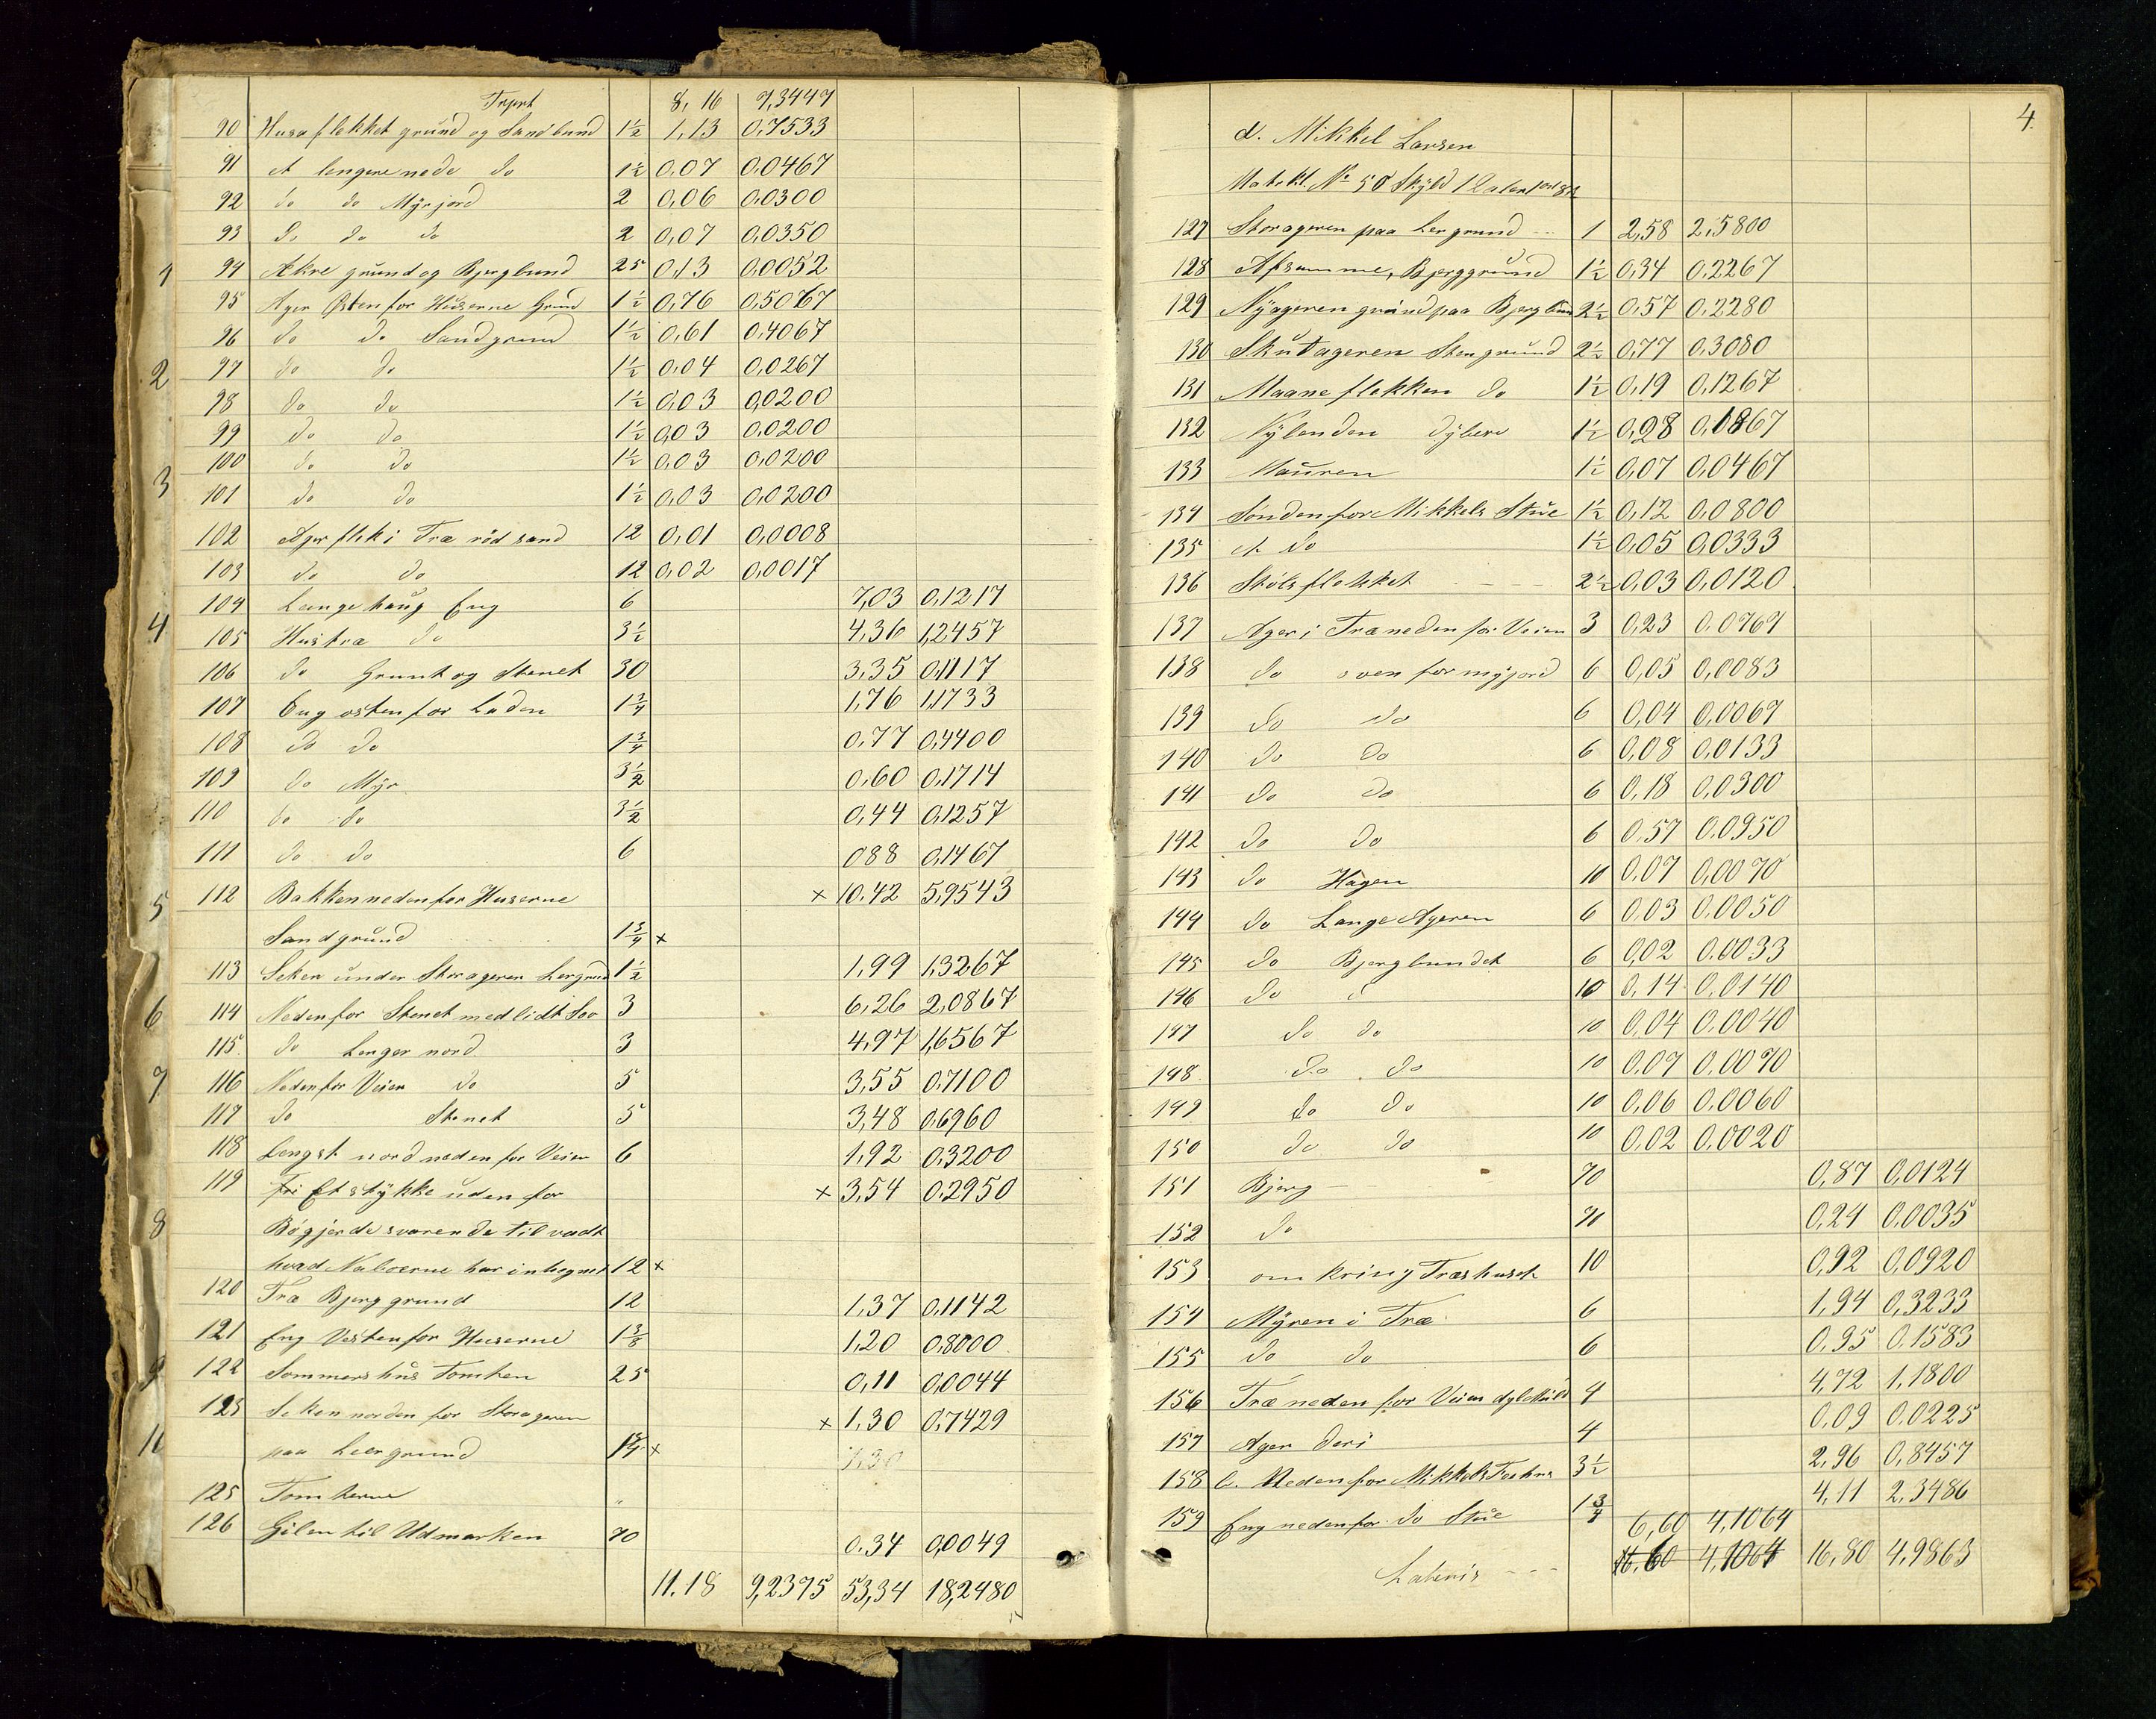 Trprt 8,16 7,3447
90 Husaflekket grund og Sandbund 1½ 1,13 0,7533
91 et lengere nede do 1½ 0,07 0,0467
92 do do Myrjord 2 0,06 0,0300
93 do do do 2 0,07 0,0350
94 Akre grund og Bjergbund 25 0,13 0,0052
95 Ager Østenfor Huserne Grund 1½ 0,76 0,5067
96 do do Sandgrund 1½ 0,61 0,4067
97 do do 1½ 0,04 0,0267
98 do do 1½ 0,03 0,0200
99 do do 1½ 0,03 0,0200
100 do do 1½ 0,03 0,0200
101 do do 1½ 0,03 0,0200
102 Agerflek i Træ rød sand 12 0,01 0,0008
103 do do 12 0,02 0,0017
104 Langehaug Eng 6 7,03 0,1217
105 Hustræ do 3½ 4,36 1,2457
106 do Grunt og Stenet 30 3,35 0,1117
107 Eng østenfor Laden 1¾ 1,76 1,1733
108 do do 1¾ 0,77 0,4400
109 do Myr 3½ 0,60 0,1714
110 do do 3½ 0,44 0,1257
111 do do 6 088 0,1467
112 Bakken nedenfor Huserne × 10,42 5,9543
Sandgrund 1¾ ×
113 Seken under Storageren Lergrund 1½ 1,99 1,3267
114 Nedenfor Stenet med lidt 3 6,26 2,0867
115 do Lenger nord 3 4,97 1,6567
116 Nedenfor Veien do 5 3,55 0,7100
117 do Stenet 5 3,48 0,6960
118 Lengst nord nedenfor Veien 6 1,92 0,3200
119 Et stykke uden for × 3,54 0,2950
Bøgjerde svarende til vadt
hvad Naboerne har inhegnet 12 ×
120 Træ Bjerggrund 12 1,37 0,1142
121 Eng Vestenfor Huserne 1,20 0,8000
122 Sommershus Tomten 25 0,11 0,0044
123 Seken norden for Storageren × 1,30 0,7429
paa Leergrund 1¾ ×
1,30
125 Tomterne "
126 Gilen til Udmarken 70 0,34 0,0049
11.18 9,2375 53,34 18,2480
1
2
3
4
5
6
7
8
9
10
4.
d. Mikkel Larsen
Matrkl. № 50 Skyld 1 Daler
127 Storageren paa Lergrund 1 2,58 2,5800
128 Afsamme, Bjerggrund 1½ 0,34 0,2267
129 Nyageren grund paa Bjergbund 2½ 0,57 0,2280
130 Skutageren Stengrund 2½ 0,77 0,3080
131 Maaneflekken do 1½ 0,19 0,1267
132 Nylenden dybere 1½ 0,28 0,1867
133 Hauren 1½ 0,07 0,0467
134 Søndenfor Mikkels Stue 1½ 0,12 0,0800
135 et do 1½ 0,05 0,0333
136 Stølsflekket 2½ 0,03 0,0120
137 Ager i Træ nedenfor Veien 3 0,23 0,0767
138 do ovenfor myjord 6 0,05 0,0083
139 do do 6 0,04 0,0067
140 do do 6 0,08 0,0133
141 do do 6 0,18 0,0300
142 do do 6 0,57 0,0950
143 do Hagen 10 0,07 0,0070
144 do Lange Ageren 6 0,03 0,0050
145 do Bjergbundet 6 0,02 0,0033
146 do d 10 0,14 0,0140
147 do do 10 0,04 0,0040
148 do do 10 0,07 0,0070
149 do do 10 0,06 0,0060
150 do do 10 0,02 0,0020
151 Bjerg 70 0,87 0,0124
152 do 70 0,24 0,0035
153 omkring Træshuset 10 0,92 0,0920
154 Myren i Træ 6 1,94 0,3233
155 do do 6 0,95 0,1583
156 Træ neden for Veien dyb 4 4,72 1,1800
157 Ager deri 4 0,09 0,0225
158 Nedenfor Mikkels 3½ 2,96 0,8457
159 Eng nedenfor do Stue 1¾ 4,11 2,3486
6,60 4,1064
Lateris 16,60 4,1064 16,80 4,9863